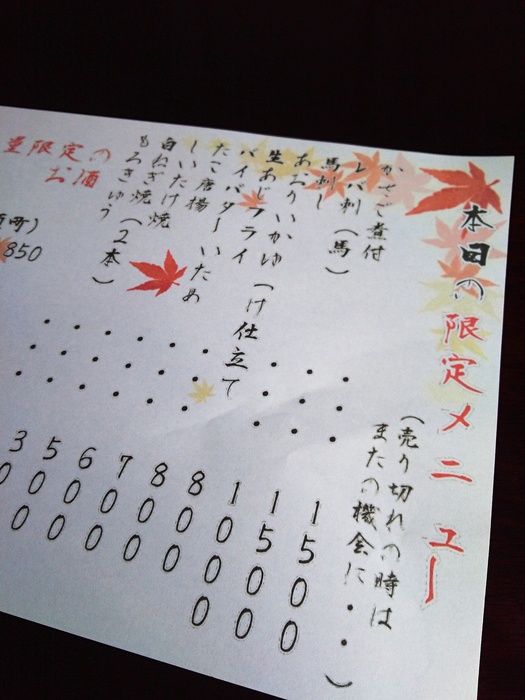 本日の限定メニュー
(売り切れの時は
またの機会に・・・)
かさご煮付
レバ刺(馬)
馬刺し
あおりいかゆ(け仕立て
生あじフライ
パイバターいため
たこ唐揚
しいたけ焼
白ねぎ焼(2本)
もろきゅう
・・・1500
・・・1500
・・・1000
・・・800
・・・800
・・・700
・・・600
・・・500
・・・300
量限定の
お酒
町)
850